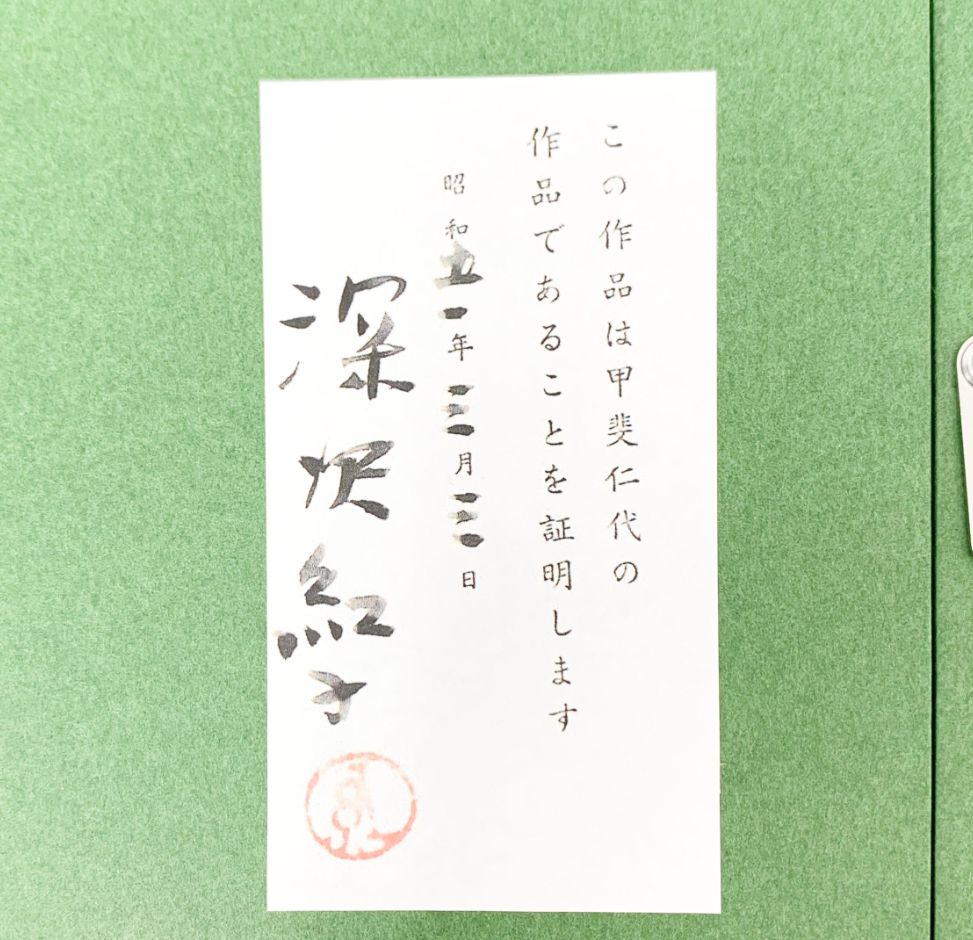 この作品は甲斐仁代の
作品であることを証明します
昭和五一年三月三日
深沢紅子